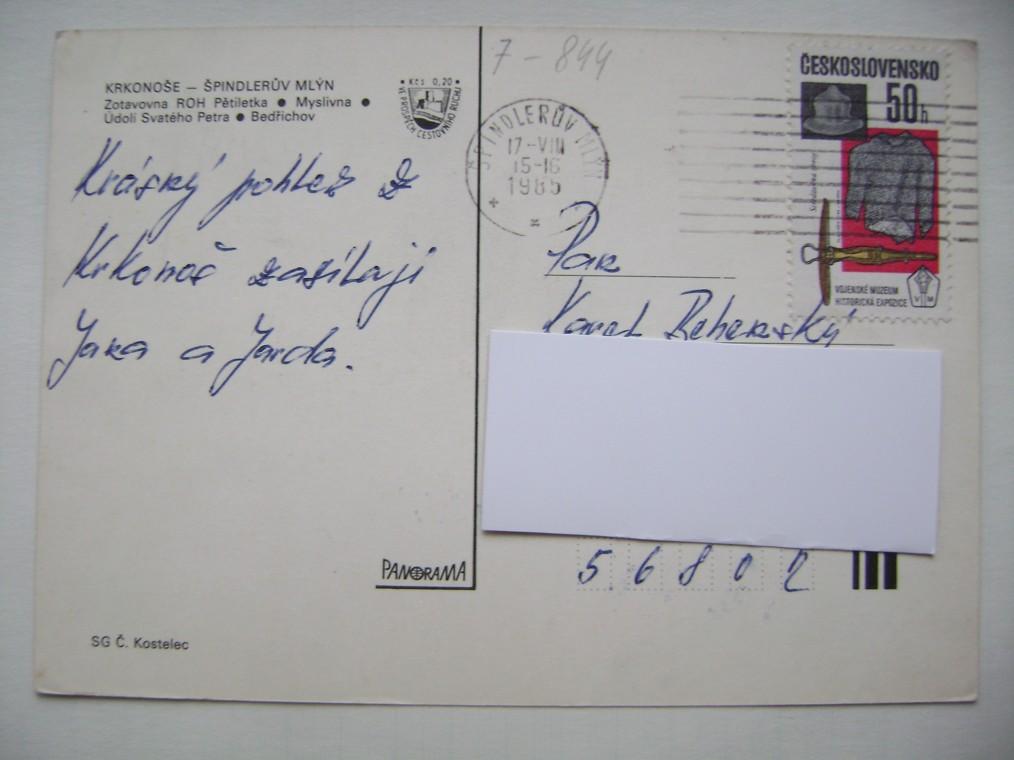 KRKONOŠE – ŠPINDLERŮV MLÝN
Zotavovna ROH Pětiletka ● Myslivna ●
Údolí Svatého Petra ● Bedřichov
• Kčs 0,20 •
VE PROSPĚCH CESTOVNÍHO RUCHU
Krásný pohled z
Krkonoš zasílají
Jana a Jarda.
PANORAMA
SG Č. Kostelec
7-844
ŠPINDLERŮV MLÝN
17-VIII
15-16
1985
ČESKOSLOVENSKO
50h
VOJENSKÉ MUZEUM
HISTORICKÁ EXPOZICE
VM
Pan
Karel
56802